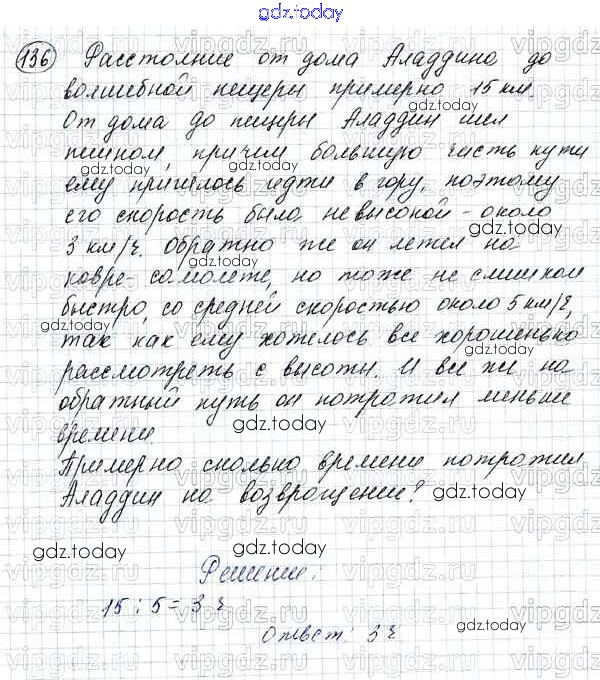 gdz.today
136 Расстояние от дома Аладдина до
волшебной пещеры примерно 15 км.
От дома до пещеры Аладдин шел
пешком, причем большую часть пути
ему пришлось идти в гору, поэтому
его скорость была невысокой - около
3 км/ч. Обратно же он летел на
ковре-самолете, но тоже не слишком
быстро, со средней скоростью около 5 км/ч,
так как ему хотелось все хорошенько
рассмотреть с высоты. И все же на
обратный путь он потратил меньше
времени.
Примерно сколько времени потратил
Аладдин на возвращение?
gdz.today
Решение:
15 : 5 = 3 ч
Ответ: 3 ч
gdz.today